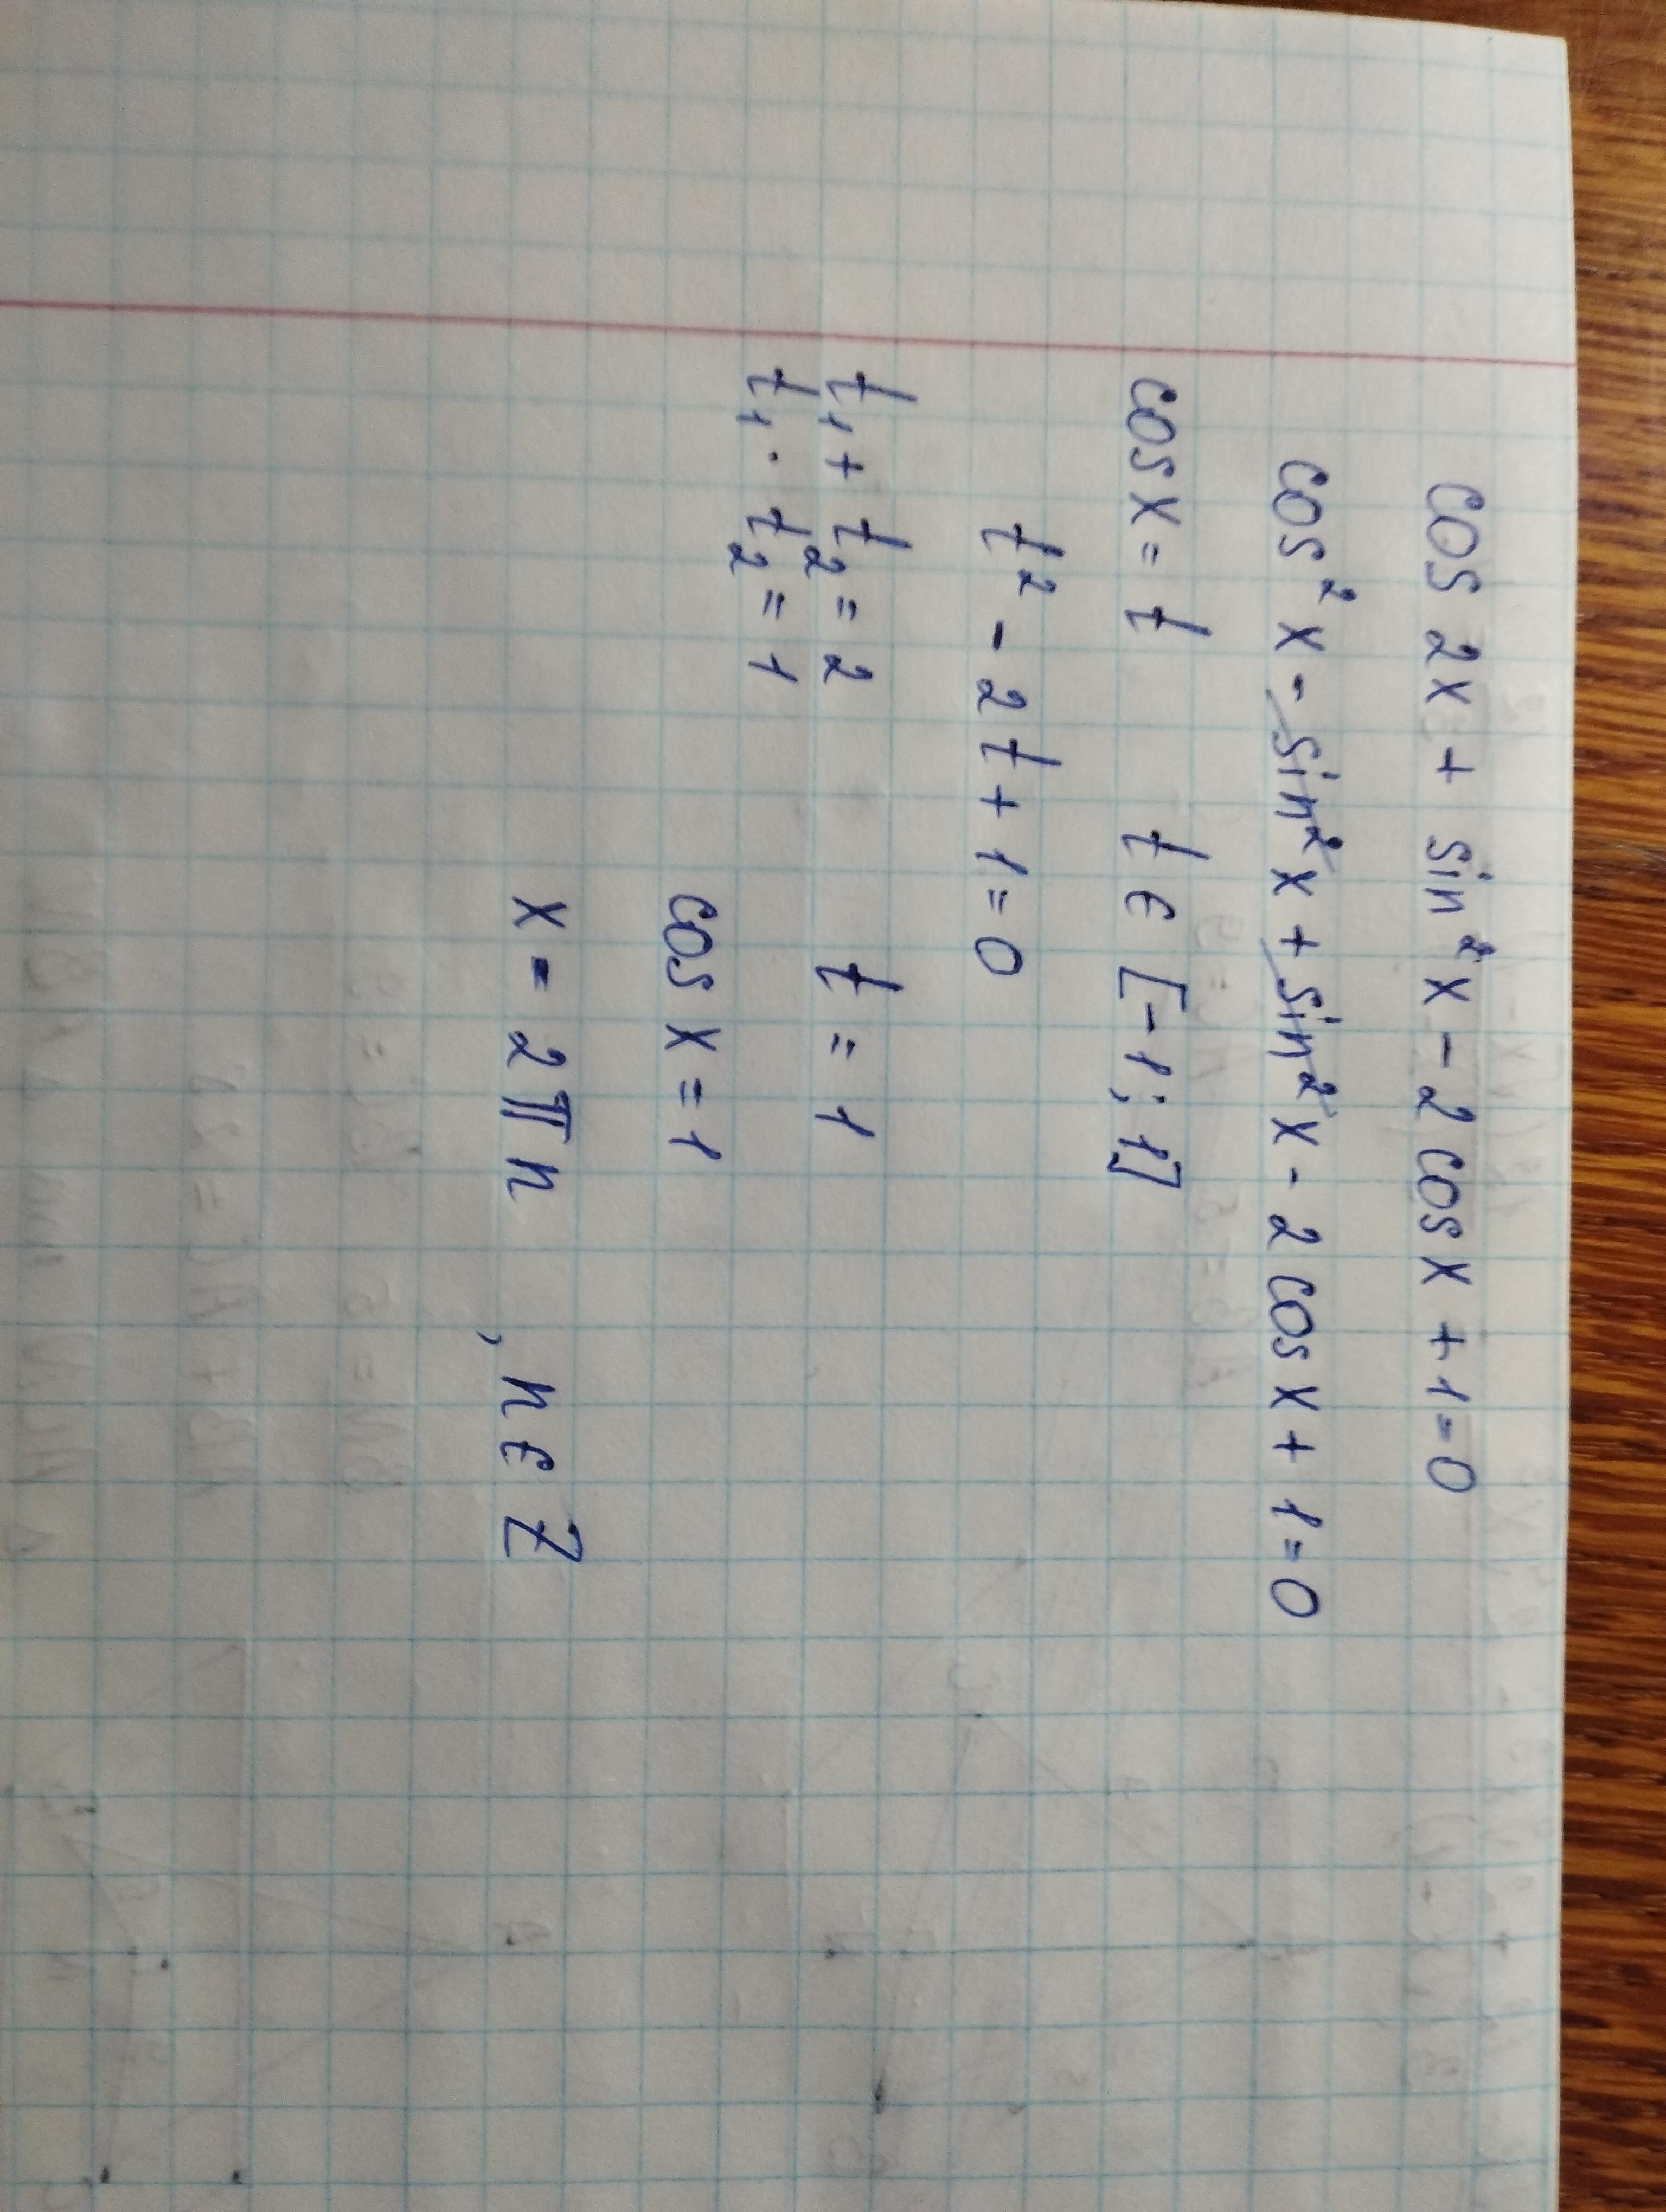 cos 2x + sin²x - 2 cos x + 1 = 0
cos²x - sin²x + sin²x - 2 cos x + 1 = 0
cos x = t t ∈ [-1; 1]
t² - 2t + 1 = 0
t₁ + t₂ = 2 t = 1
t₁ · t₂ = 1
cos x = 1
x = 2πn , n ∈ Z